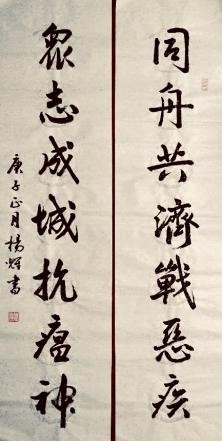 同舟共濟戰惡疾
眾志成城抗瘟神
庚子正月楊輝書